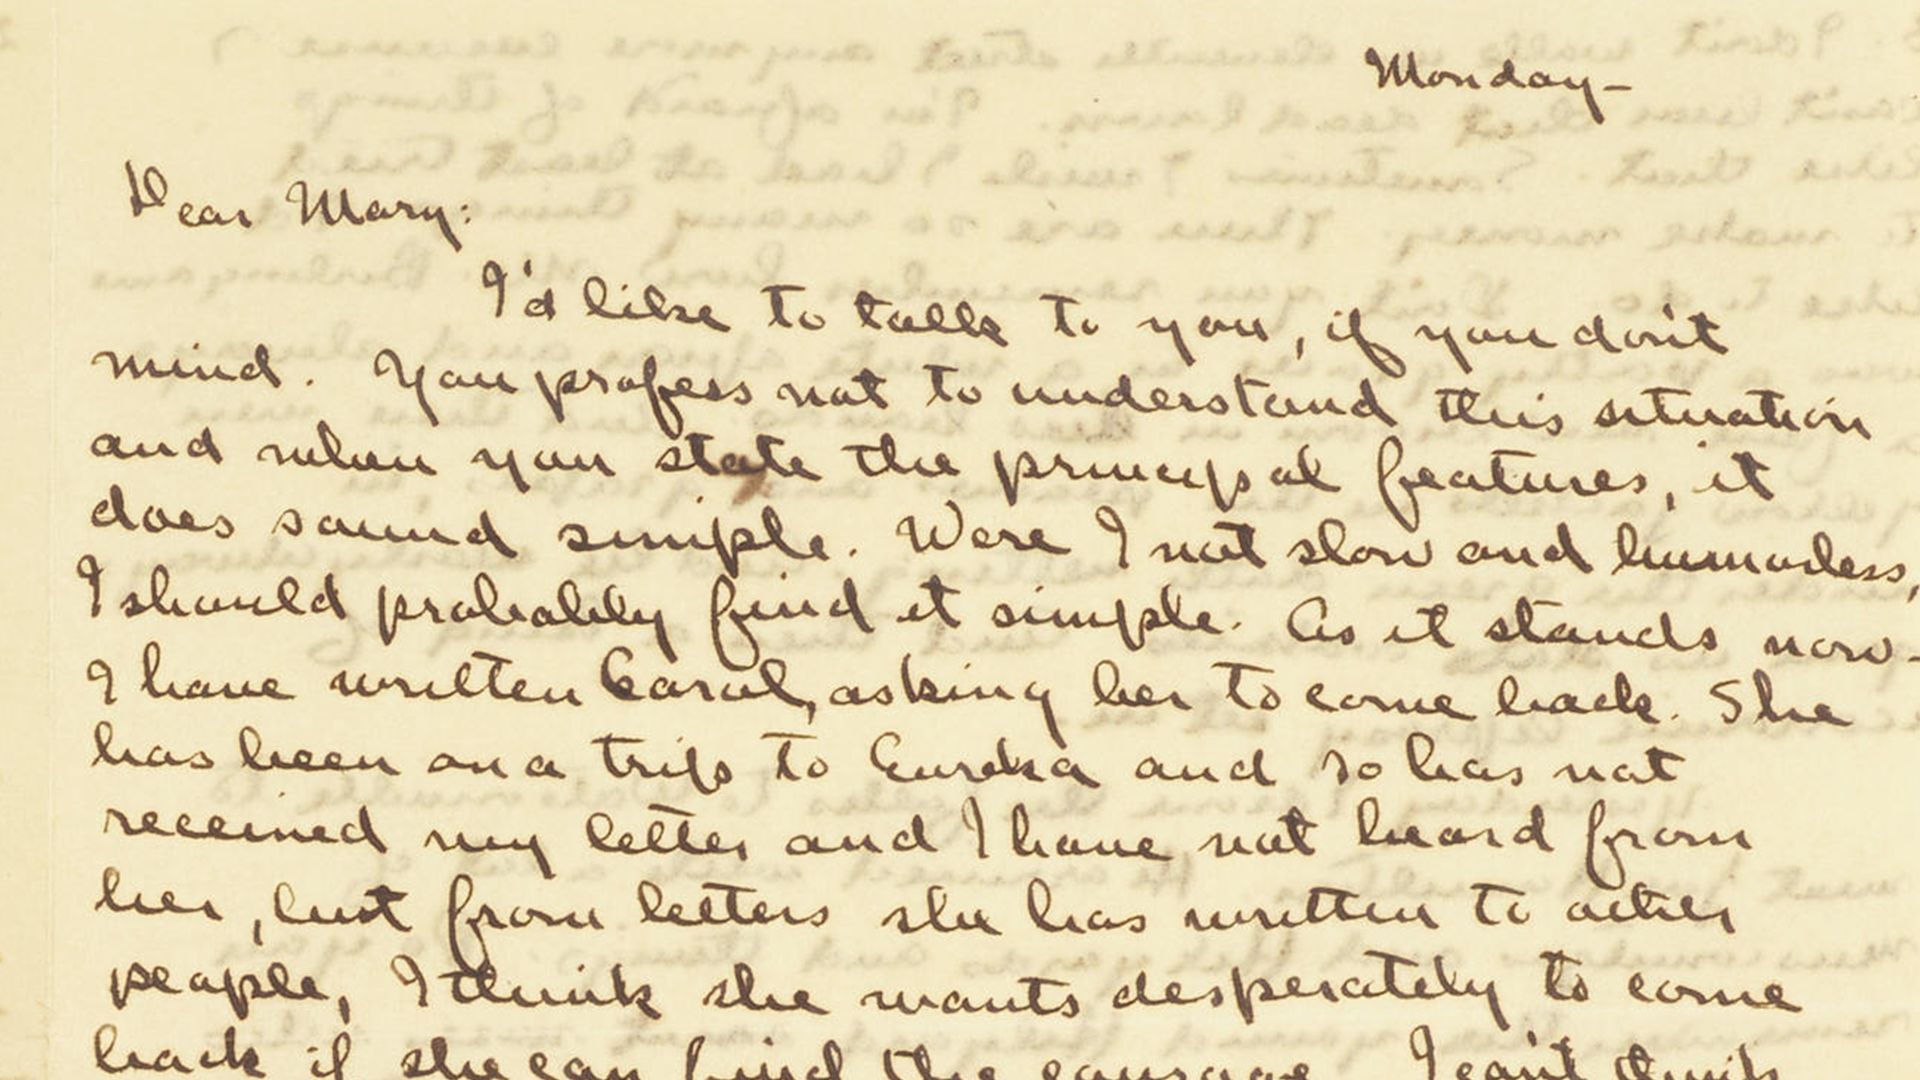 Monday-
Dear Mary:
I'd like to talk to you, if you don't
mind. You profess not to understand this situation
and when you state the principal features, it
does sound simple. Were I not slow and humorless,
I should probably find it simple. As it stands now-
I have written Carol, asking her to come back. She
has been on a trip to Eureka and so has not
received my letter and I have not heard from
her, but from letters she has written to other
people, I think she wants desperately to come
back if she can find the courage. I can't think